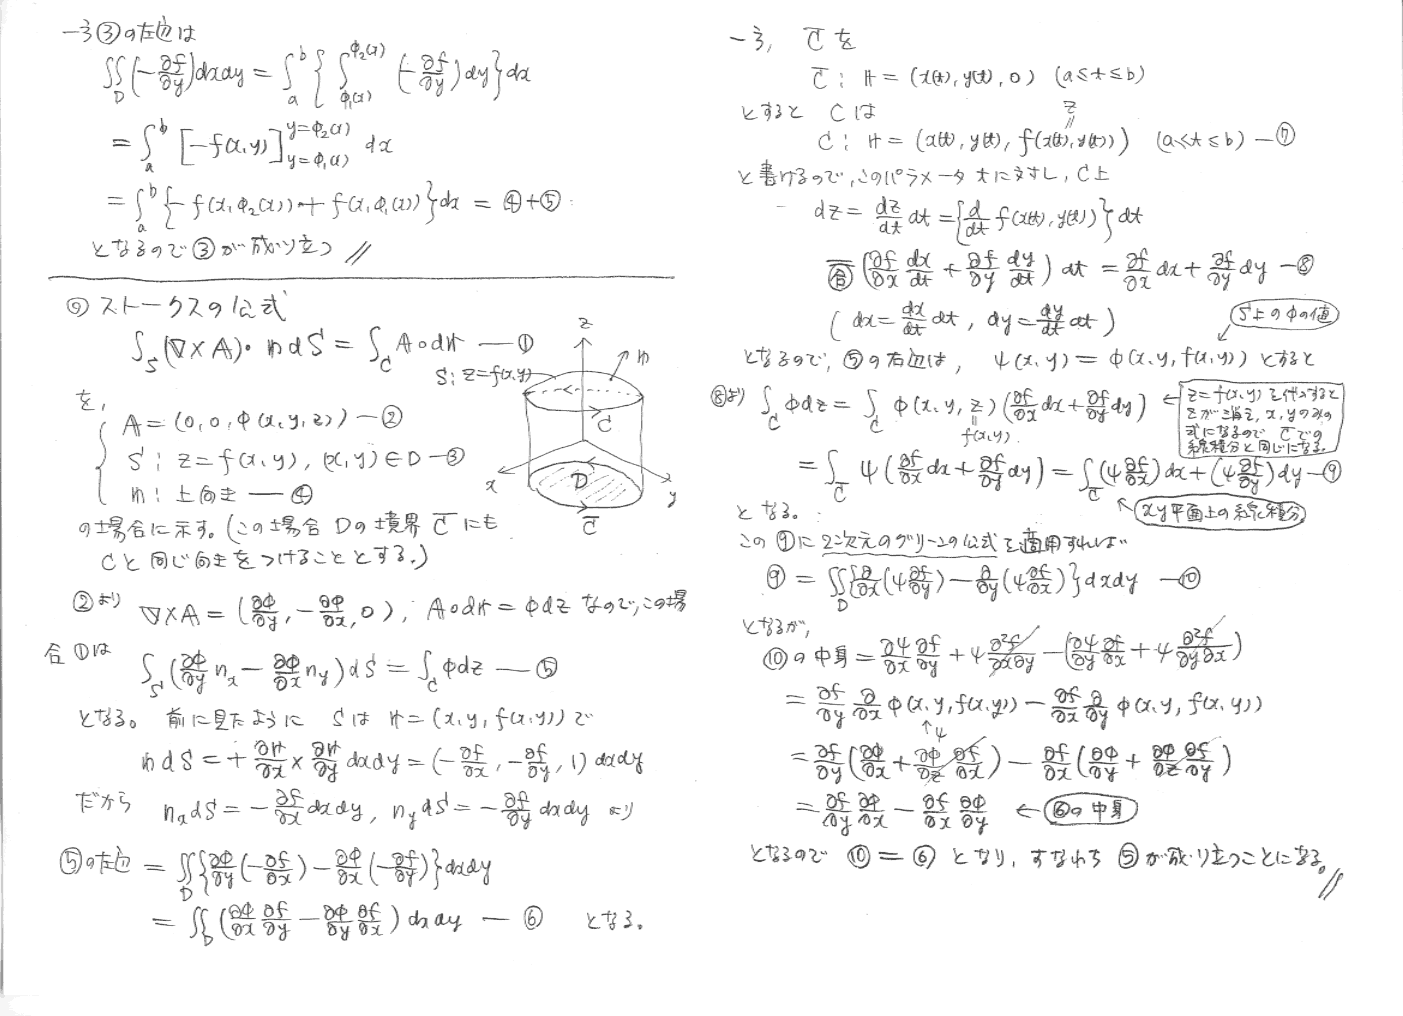 一方③の左辺は
∬_D (-∂f/∂y)dxdy = ∫_a^b { ∫_{φ₁(x)}^{φ₂(x)} (-∂f/∂y)dy } dx
= ∫_a^b [-f(x,y)]_{y=φ₁(x)}^{y=φ₂(x)} dx
= ∫_a^b {-f(x,φ₂(x)) + f(x,φ₁(x))}dx = ④+⑤
となるので③が成り立つ //
◎ ストークスの公式
∫_S (∇×A)・n dS = ∫_C A∘dr ―①
を,
A = (0, 0, φ(x,y,z)) ―②
S : z=f(x,y), (x,y)∈D ―③
n : 上向き ―④
z
n
S: z=f(x,y)
C
D
x
y
C̄
の場合に示す。(この場合 Dの境界 C̄ にも
Cと同じ向きをつけることとする。)
②より ∇×A = (∂φ/∂y, -∂φ/∂x, 0), A∘dr = φdz なので,この場
合①は
∫_S (∂φ/∂y n_x - ∂φ/∂x n_y)dS = ∫_C φdz ―⑤
となる。 前に見たように Sは r=(x,y,f(x,y))で
n dS = + ∂r/∂x × ∂r/∂y dxdy = (-∂f/∂x, -∂f/∂y, 1) dxdy
だから n_x dS = -∂f/∂x dxdy, n_y dS = -∂f/∂y dxdy より
⑤の左辺 = ∬_D {∂φ/∂y(-∂f/∂x) - ∂φ/∂x(-∂f/∂y)}dxdy
= ∬_D (∂φ/∂x ∂f/∂y - ∂φ/∂y ∂f/∂x) dxdy ―⑥ となる。
一方, C̄を
C̄ : r = (x(t), y(t), 0) (a≤t≤b)
とすると Cは
z
=
C : r = (x(t), y(t), f(x(t),y(t))) (a≤t≤b) ―⑦
と書けるので,このパラメータtに対し, C上
dz = dz/dt dt = {d/dt f(x(t),y(t))}dt
=_合 (∂f/∂x dx/dt + ∂f/∂y dy/dt) dt = ∂f/∂x dx + ∂f/∂y dy ―⑧
(dx = dx/dt dt, dy = dy/dt dt)
S上のφの値
となるので, ⑤の右辺は, ψ(x,y) = φ(x,y,f(x,y)) とすると
⑧より ∫_C φdz = ∫_C φ(x,y,z)(∂f/∂x dx + ∂f/∂y dy)
f(x,y)
← z=f(x,y)を代入すると
zが消え, x,yのみの
式になるので C̄での
線積分と同じになる。
= ∫_C̄ ψ(∂f/∂x dx + ∂f/∂y dy) = ∫_C̄ (ψ∂f/∂x)dx + (ψ∂f/∂y)dy ―⑨
となる。
xy平面上の線積分
この⑨に2次元のグリーンの公式を適用すれば
⑨ = ∬_D {∂/∂x(ψ∂f/∂y) - ∂/∂y(ψ∂f/∂x)}dxdy ―⑩
となるが,
⑩の中身 = ∂ψ/∂x ∂f/∂y + ψ ∂²f/∂x∂y - (∂ψ/∂y ∂f/∂x + ψ ∂²f/∂y∂x)
= ∂f/∂y ∂/∂x φ(x,y,f(x,y)) - ∂f/∂x ∂/∂y φ(x,y,f(x,y))
↑ψ
= ∂f/∂y (∂φ/∂x + ∂φ/∂z ∂f/∂x) - ∂f/∂x (∂φ/∂y + ∂φ/∂z ∂f/∂y)
= ∂f/∂y ∂φ/∂x - ∂f/∂x ∂φ/∂y ← ⑥の中身
となるので ⑩=⑥ となり, すなわち ⑤が成り立つことになる。//